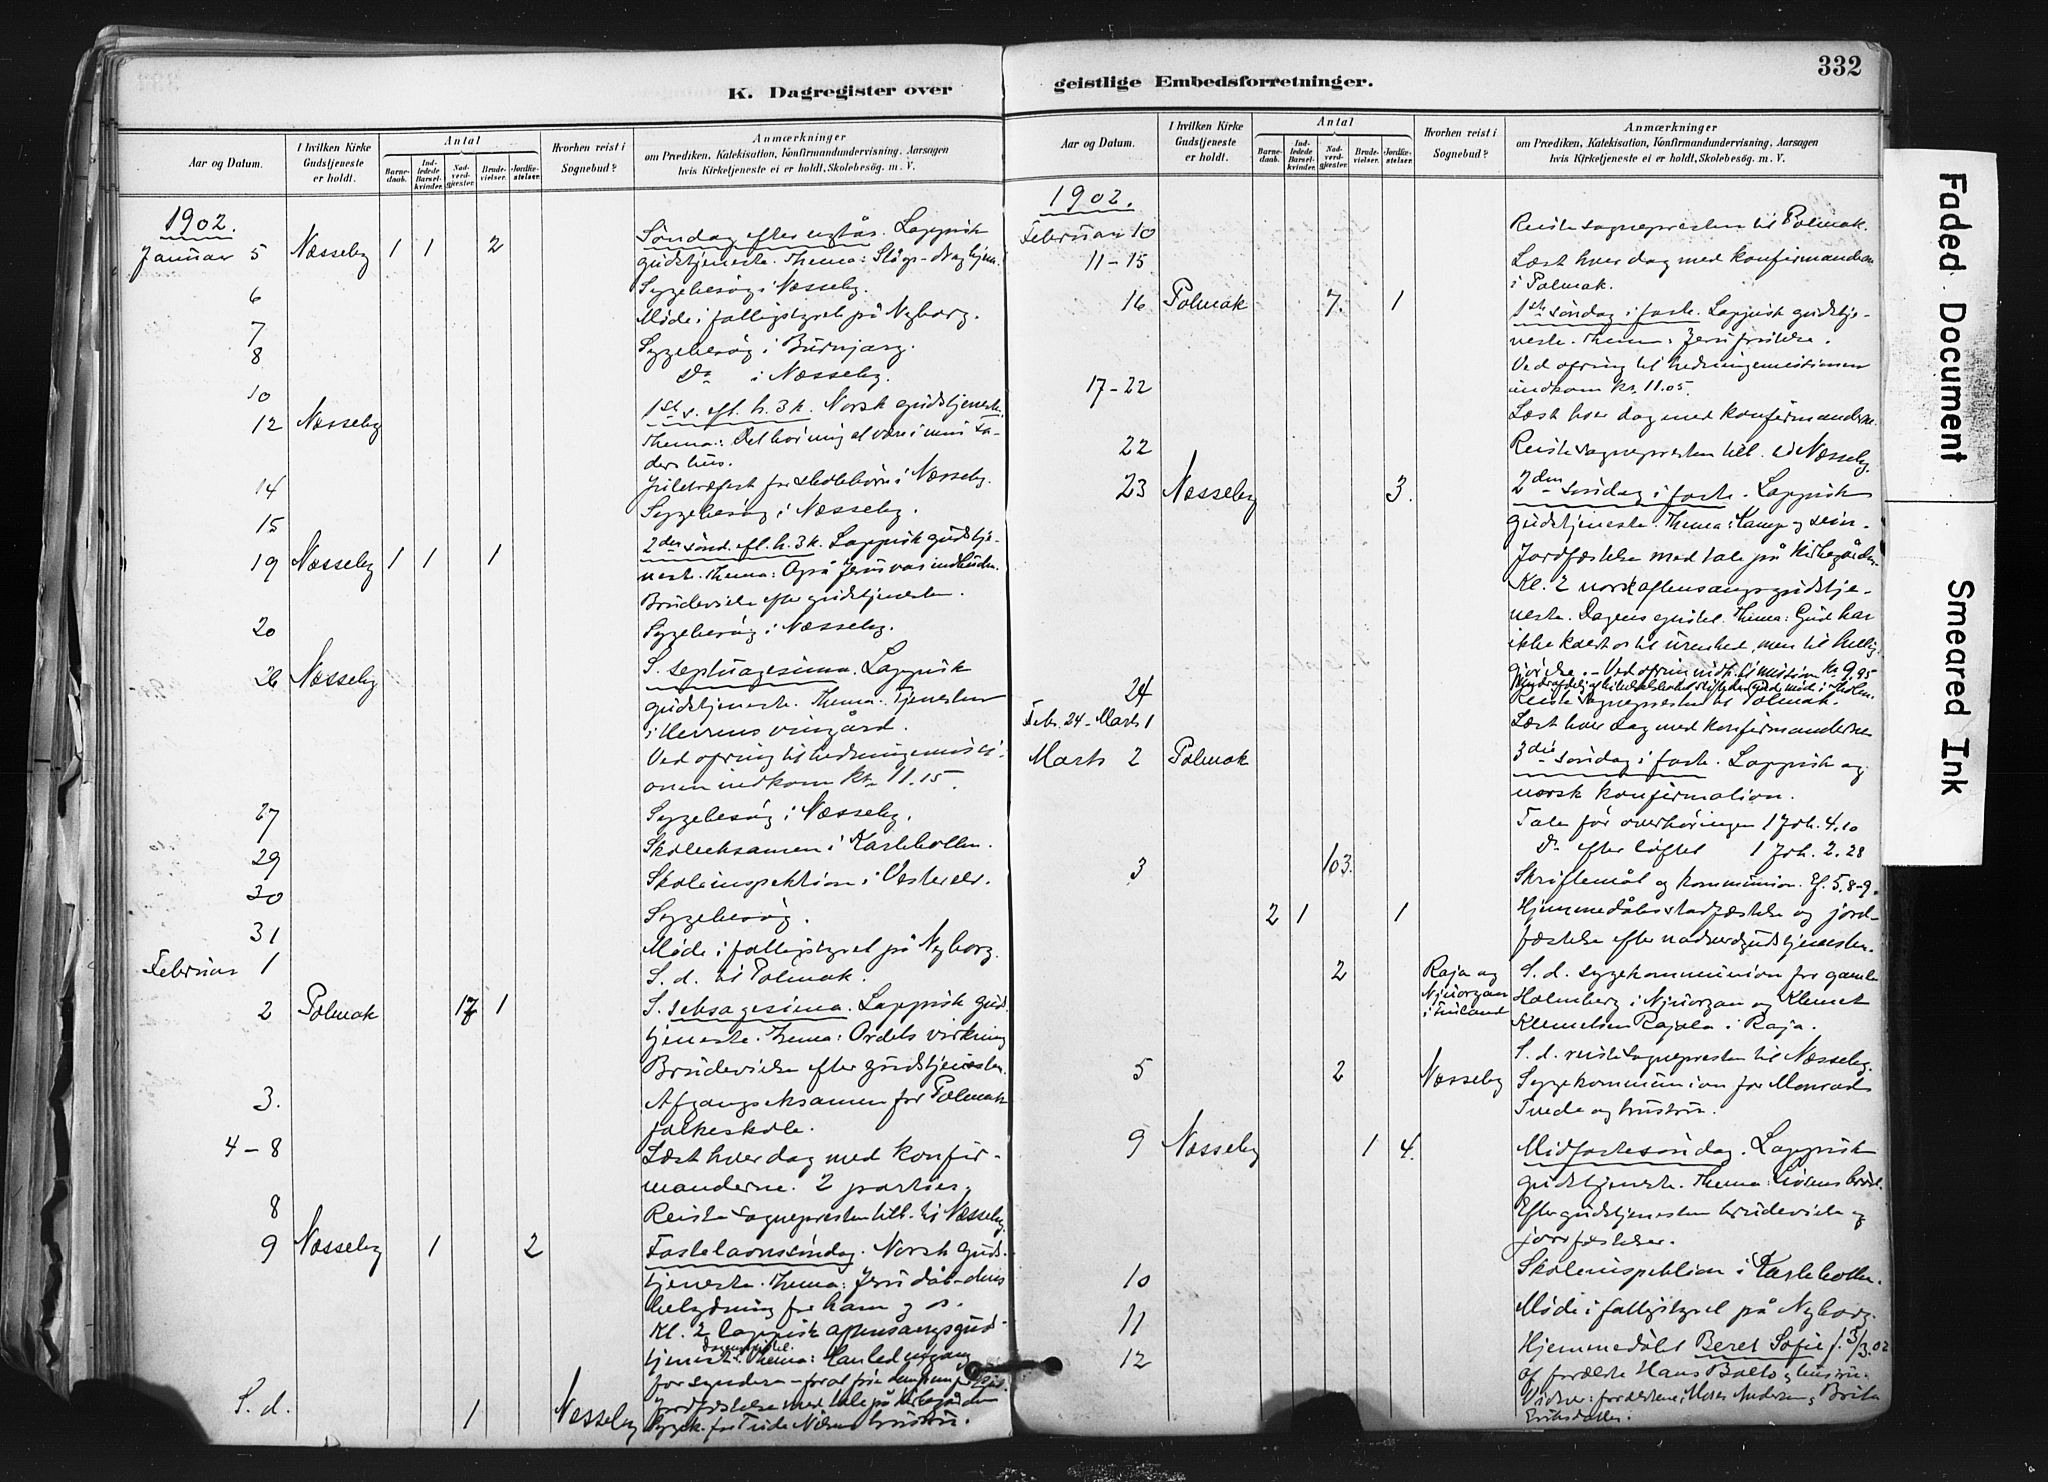 332
K. Dagregister over
geistlige Embedsforretninger.
Aar og Datum.
I hvilken Kirke Gudstjeneste er holdt.
Antal
Barnedaab.
Indledede Barselkvinder.
Nadverdgjester.
Brudevielser.
Jordfæstelser.
Hvorhen reist i Sognebud?
Anmærkninger
om Prædiken, Katekisation, Konfirmandundervisning. Aarsagen
hvis Kirketjeneste ei er holdt, Skolebesøg. m. V.
1902.
Januar 5 Næsseby 1 1 2 Søndag efter nytår. Lappisk
gudstjeneste. Thema:
6 Sygebesøg i Næsseby.
7 Møde i fattigstyret på Nyborg.
8 Sygebesøg i Burnjarg.
10 Do i Næsseby.
12 Næsseby 1ste s. eft. h. 3 k. Norsk gudstjeneste.
Thema: Det bør mig at være i min fa-
ders hus.
14 Juletræfest for skolebørn i Næsseby.
15 Sygebesøg i Næsseby.
19 Næsseby 1 1 1 2den sønd. eft. h. 3 k. Lappisk gudstje-
neste. Thema: Også Jesus var indbuden.
Brudevielse efter gudstjenesten.
20 Sygebesøg i Næsseby.
26 Næsseby S. septuagesima. Lappisk
gudstjeneste. Thema: Tjenesten
i Herrens vingård.
Ved ofring til hedningemissi-
onen indkom kr. 11.15.
27 Sygebesøg i Næsseby.
29 Skoleeksamen i Karlebotten.
30 Skoleinspektion i Vesterelv.
31 Sygebesøg.
Møde i fattigstyret på Nyborg.
Februar 1 S. d. til Polmak.
2 Polmak 17 1 S. seksagesima. Lappisk gud-
tjeneste. Thema: Ordets virkning
Brudevielse efter gudstjenesten.
3. Afgangseksamen for Polmak
folkeskole.
4-8 Læst hver dag med konfir-
manderne. 2 partier.
8 Reiste sognepresten tilb. til Næsseby.
9 Næsseby 1 2 Fastelavnssøndag. Norsk guds-
tjeneste. Thema: Jesu dåb - dens
betydning for ham og os.
Kl. 2 lappisk aftensangsgud-
tjeneste. Thema:
Jordfæstelse med tale på kirkegården
S. d. 1 Næsseby Sygek. for Nilsens hustru.
1902.
Februar 10 Reiste sognepresten til Polmak.
11-15 Læst hver dag med konfirmanderne
i Polmak.
16 Polmak 7. 1 1ste søndag i faste. Lappisk gudstje-
neste. Thema: Jesu fristelse.
Ved ofring til hedningemissionen
indkom kr. 11.05.
17-22 Læst hver dag med konfirmanderne.
22 Reiste sognepresten tilb. til Næsseby.
23 Næsseby 3. 2den søndag i faste. Lappisk
gudstjeneste. Thema: Kamp og seier.
Jordfæstelse med tale på kirkegården.
Kl. 2 norsk aftensangsgudstje-
neste. Dagens epistel. Thema: Gud har
ikke kaldt os til urenhed, men til hellig-
gjørelse. - Ved ofring til mission kr 9.95
24 Reiste sognepresten til Polmak.
Feb. 24 - Marts 1 Læst hver dag med konfirmanderne
Marts 2 Polmak 3die søndag i faste. Lappisk og
norsk konfirmation.
Tale før overhøringen 1 Joh. 4.10
Do efter løftet 1 Joh. 2.28
3 103. Skriftemål og kommunion. Ef. 5.8-9.
2 1 1 Hjemmedåbsstadfæstelse og jord-
fæstelse efter nadverdgudstjenesten.
2 Raja og Njuorgan i Finland S. d. sygekommunion for gamle
Holmberg i Njuorgan og Klemet
Klemetsen Rajala i Raja.
S. d. reiste sognepresten til Næsseby.
5 2 Næsseby Sygekommunion for Monrad
Tvede og hustru.
9 Næsseby 1 4. Midfastesøndag. Lappisk
gudstjeneste. Thema: Livens brød.
Efter gudstjenesten brudevielse og
jordfæstelser.
10 Skoleinspektion i Karlebotten.
11 Møde i fattigstyret på Nyborg.
12 Hjemmedøbt Beret Sofie f. 5/3.02
af forældre Hans Balto og hustru.
Vidner: forældrene, Andersen og Brita
Eriksdatter.
Faded Document
Smeared Ink